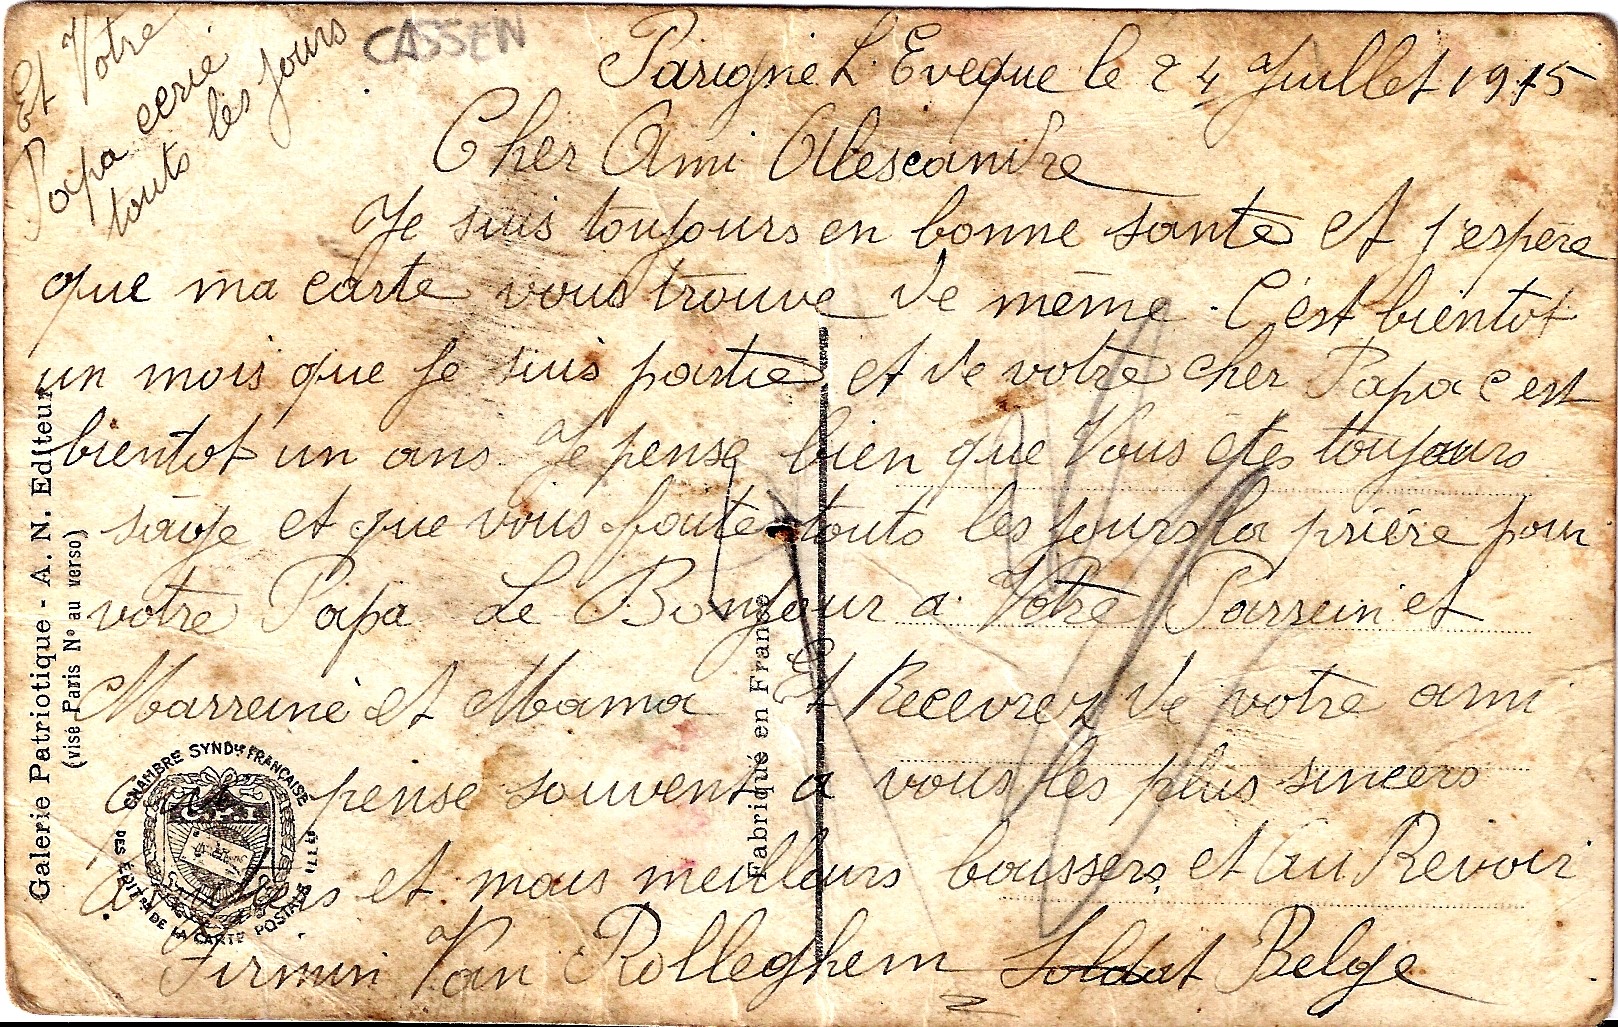 Et Votre
Papa ecrie
touts les jours
CASSEN
Parigné L'Eveque le 24 Juillet 1915
Cher Ami Alescandre
Je suis toujours en bonne sante et j'espère
que ma carte vous trouve de même. C'est bientot
un mois que je suis partie et de votre cher Papa c'est
bientot un ans. Je pense bien que Vous étes toujours
sage et que vous faite touts les jours la priére pour
votre Papa Le Bonjour a Votre Parrein et
Marreine et Mama Et Recevrez de votre ami
pense souvent a vous les plus sincers
et mais meilleurs boussers et Au Revoir
Firmin Van Rolleghem Soldat Belge
Galerie Patriotique - A. N. Editeur
(visé Paris N° au verso)
Fabriqué en France
CHAMBRE SYNDle FRANÇAISE
DES EDITrs DE LA CARTE POSTALE ILLée